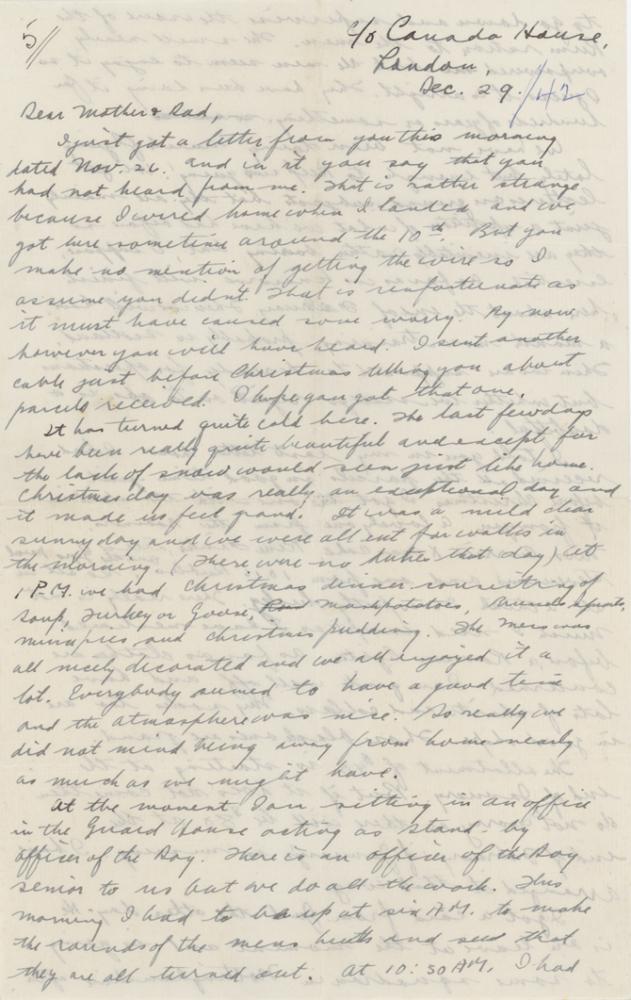 5//
c/o Canada House,
London,
Dec. 29/42
Dear Mother & Dad,
I just got a letter from you this morning
dated Nov. 26. and in it you say that you
had not heard from me. That is rather strange
because I wired home when I landed and we
got here sometime around the 10th. But you
make no mention of getting the wire so I
assume you didn't. That is unfortunate as
it must have caused some worry. By now,
however you will have heard. I sent another
cable just before Christmas telling you about
parcels received. I hope you got that one.
It has turned quite cold here. The last few days
have been really quite beautiful and except for
the lack of snow would seem just like home.
Christmas day was really an exceptional day and
it made us feel grand. It was a mild clear
sunny day and we were all out for walks in
the morning. (There were no duties that day) At
1 P.M. we had Christmas dinner consisting of
soup, Turkey or Goose, mashpotatoes, sprouts,
mincepies and christmas pudding. The mess was
all nicely decorated and we all enjoyed it a
lot. Everybody seemed to have a good time
and the atmosphere was nice. So really we
did not mind being away from home nearly
as much as we might have.
At the moment I am sitting in an office
in the Guard House acting as stand-by
officer of the Day. There is an officer of the Day
senior to us but we do all the work. This
morning I had to be up at six A.M. to make
the rounds of the mens huts and see that
they are all turned out. At 10:30 AM. I had